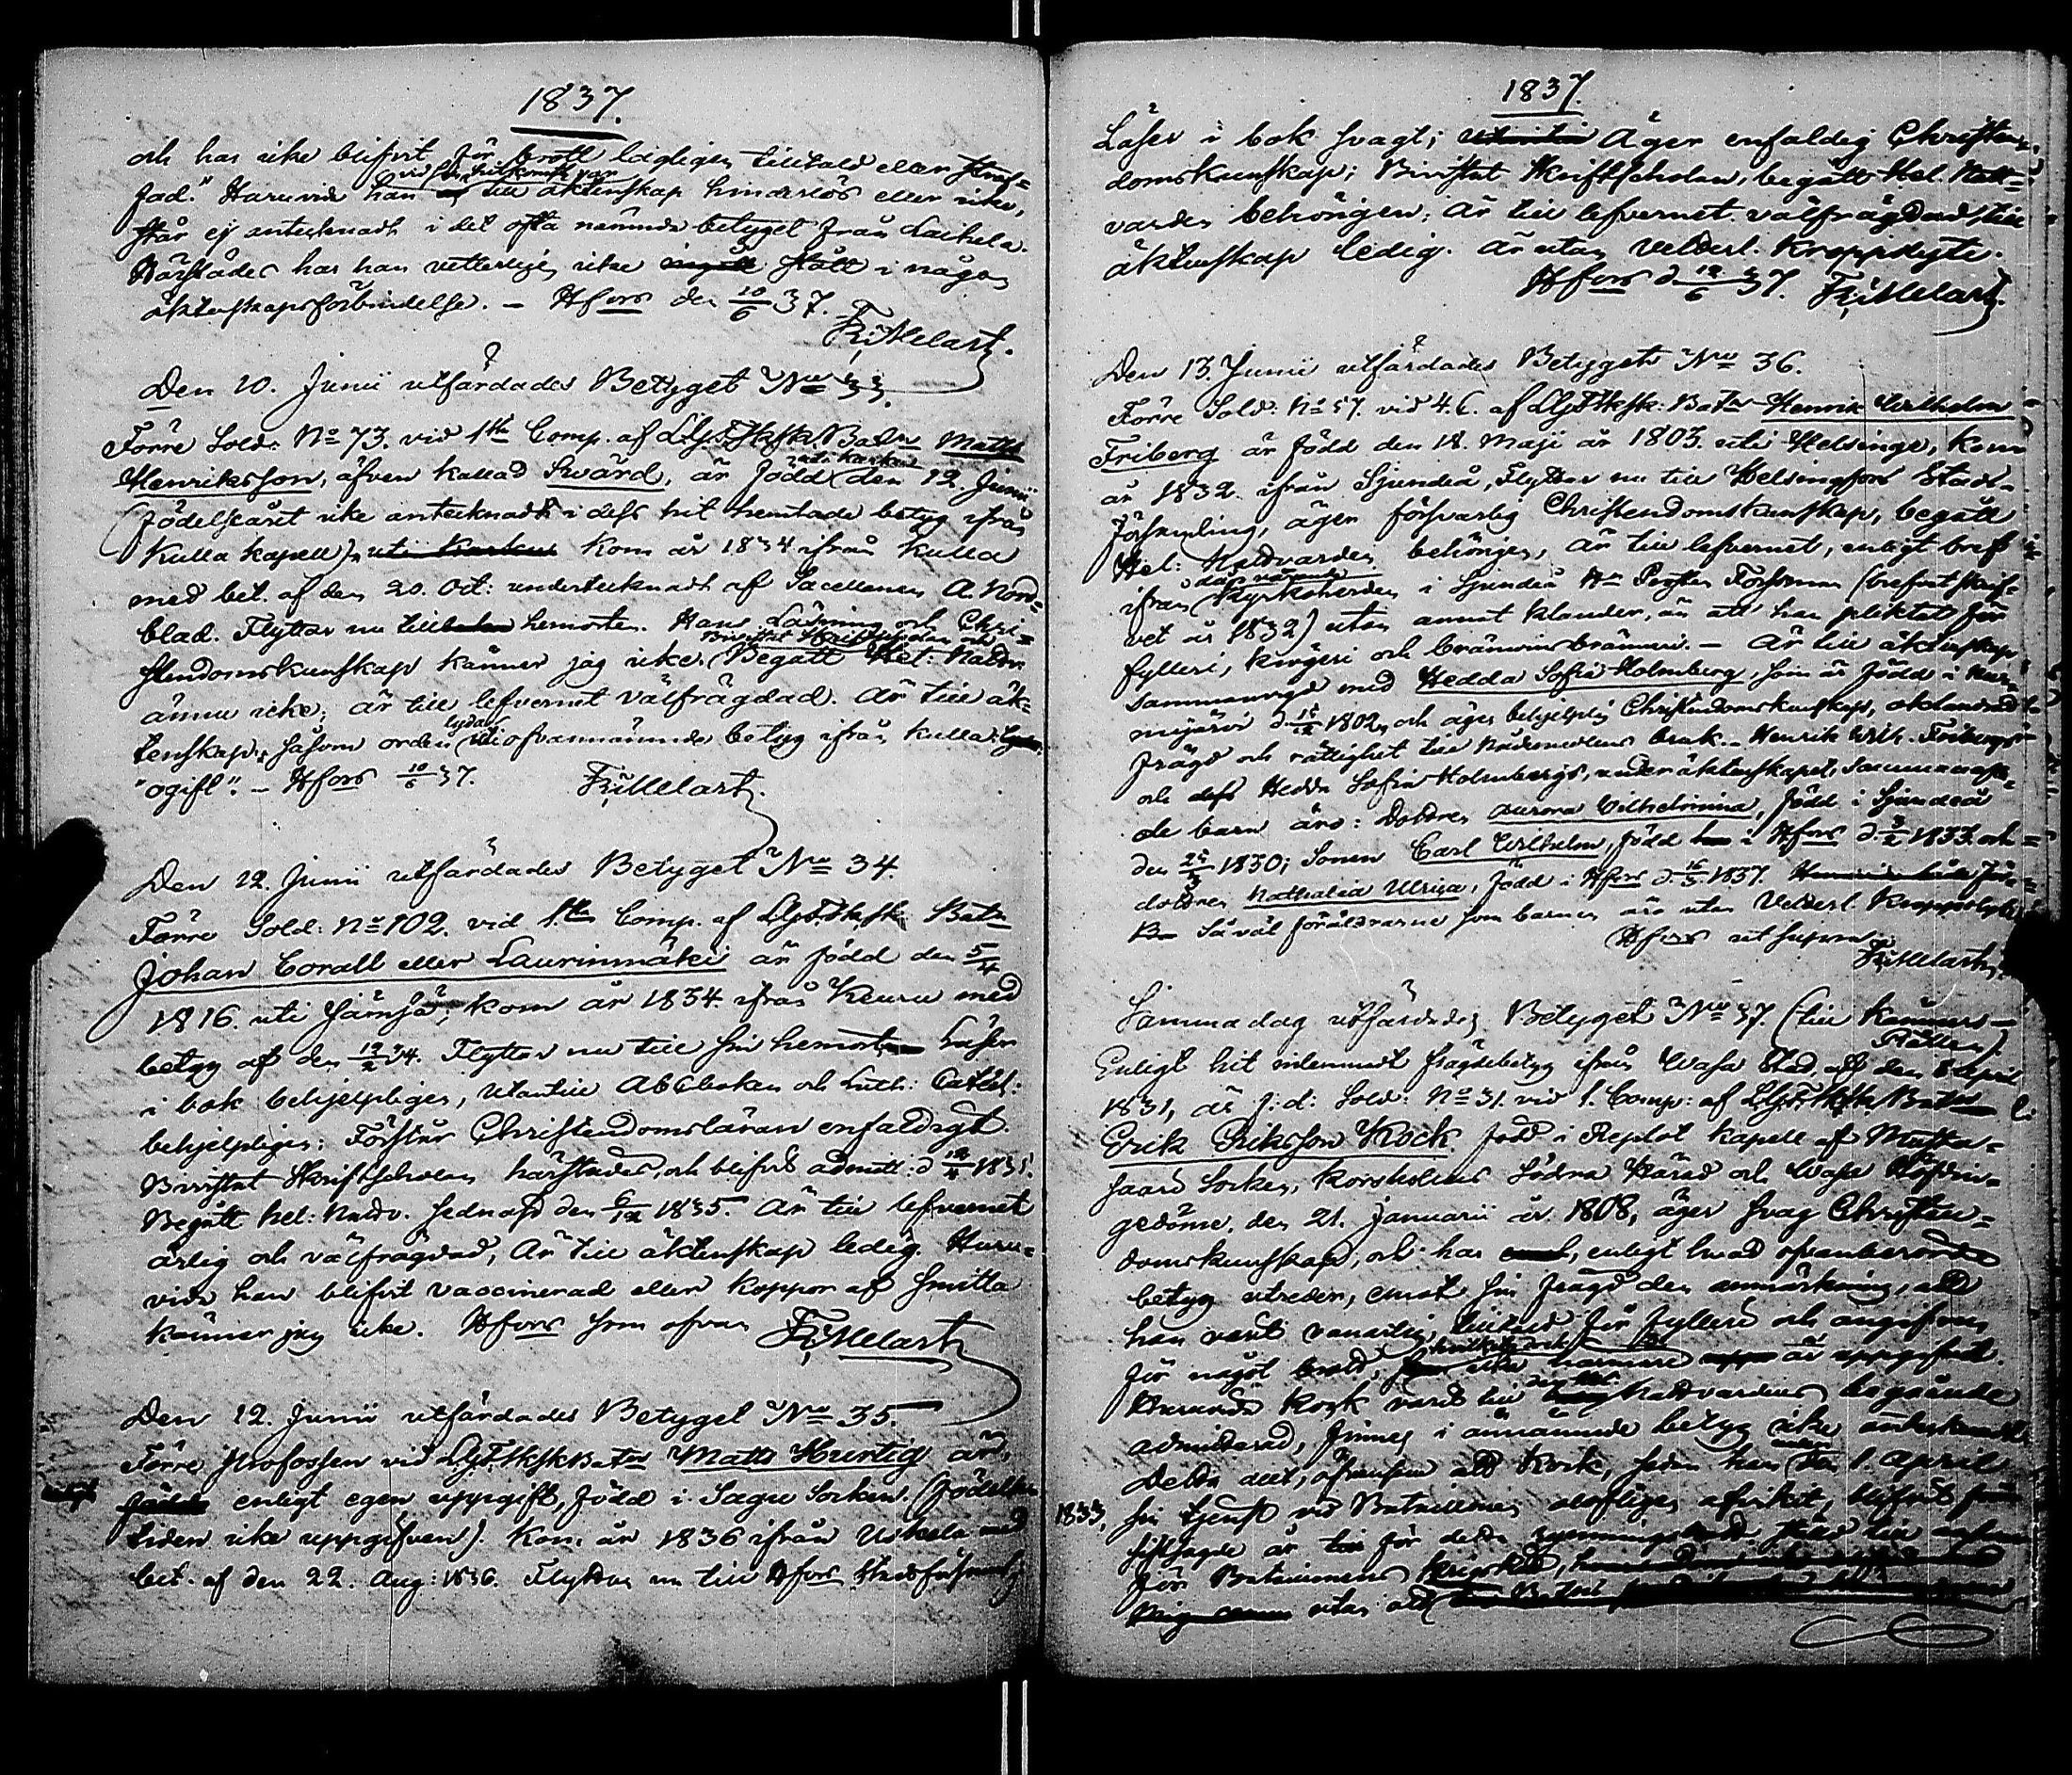 1837.
och har icke blifvit för brott lagligen tilltald eller straf-
fad." Huruvida han vid sin hitkomst var till äktenskap hinderlös eller icke,
står ej antecknadt i det ofta nämnde betyget från Laihela.
Härstädes har han vetterligen icke stått i någon
äktenskapsförbindelse. – Hfors den 10/6 37.
Fr. Melart.
Den 10. Junii utfärdades Betyget No 33.
Förre Sold. No 73. vid 1sta Comp. af LGFSksk. Batn Matts
Henriksson, äfven kallad Svärd, är född uti Karkku den 12. Junii
(födelseåret icke antecknadt i dess hit hemtade betyg ifrån
Kulla kapell), uti Karkku kom år 1834 ifrån Kulla
med bet. af den 20. Oct: undertecknadt af Sacellanen A. Nord-
blad. Flyttar nu till hemorten. Hans Läsning och Chri-
stendomskunskap känner jag icke. Bevistat Skriftskolan och Begått Hel: Nattv.
ännu icke; är till lefvernet välfrägdad. Är till äk-
tenskap, såsom orden lyda i ofvannämnde betyg ifrån Kulla:
"ogift". – Hfors 10/6 37. Fr. Melart.
Den 12. Junii utfärdades Betyget No 34.
Förre Sold: No 102. vid 1sta Comp. af LGFSksk. Batn
Johan Corall eller Laurinmäki är född den 5/4
1816. uti Jämsä, kom år 1834. ifrån Keuru med
betyg af den 12/2 34. Flyttar nu till sin hemort Läser
i bok behjelpligen, utantill Abcboken och Luth: Catech:
behjelpligen; Förstår Christendomsläran enfaldigt.
Bevistat Skriftskolan härstädes, och blifvit admitt. d 12/4 1835.
Begått Hel: Nattv. sednast den 6/12 1835. Är till lefvernet
ärlig och välfrägdad, Är till äktenskap ledig. Huru-
vida han blifvit vaccinerad eller koppor af smitta
känner jag icke. Hfors som ofvan Fr. Melart
Den 12. Junii utfärdades Betyget No 35.
Förre Profossen vid LGFSkskBatn Matts Hurtig är,
enligt egen uppgift, född i Sagu Socken. (födelse
tiden icke uppgifven). Kom år 1836 ifrån Uskela med
bet. af den 22. Aug: 1836. Flyttar nu till Hfors Stadsförsaml.
1837.
Läser i bok svagt; Äger enfaldig Christen-
domskunskap; Bevistat Skriftskolan, begått Hel. Natt-
varden behörigen; är till lefvernet välfrägdad, till
äktenskap ledig. Är utan velderl. Kroppslyte.
Hfors d 12/6 37. Fr. Melart.
Den 13. Junii utfärdades Betyget No 36.
Förre Sold: No 57. vid 4. C. af LGFSksk: Batn Henrik Wilhelm
Friberg är född den 18. Maji år 1803. uti Helsinge, kom
år 1832. ifrån Sjundeå, Flyttar nu till Helsingfors Stads-
församling, äger försvarlig Christendomskunskap, begått
Hel: Nattvarden behörigen, är till lefvernet, enligt bref
ifrån då varande Kyrkoherden i Sjundeå Hr Prosten Forsman (brefvet skrif-
vet år 1832) utan annat klander, än att han pliktat för
fylleri, krögeri och bränvins bränneri. – Är till äktenskap
sammanvigd med Hedda Sofia Holmberg, som är född i
d. 15/12 1802, och äger behjelplig Christendomskunskap, oklandrad
frägd och rättighet till Nådemedlens bruk. – Henrik Wilh. Fribergs
och Hedda Sofia Holmbergs, under äktenskapet, sammanafla-
de barn äro: Dottren Aurora Wilhelmina, född i Sjundeå
den 25/3 1830; Sonen Carl Wilhelm, född i Hfors d. 3/2 1833. och
dottren Nathalia Ulrica, född i Hfors d. 16/5 1837.
Så väl föräldrarne som barnen äro utan Velderl. Kroppslyte
Hfors ut supra.
Fr. Melart.
Samma dag utfärdades Betyget No 37. (till Kämners-
Rätten).
Enligt hit inlemnadt frägdebetyg ifrån Wasa Stad, af den 8 April
1831, är f: d: Sold: No 31. vid 1. Comp: af LGFSksk. Batn
Erik Eriksson Kock född i Replot Kapell af Mussta-
saari Socken, Korsholms Södra Härad och Wasa Höfdin-
gedöme, den 21. Januarii år. 1808, äger svag Christen-
domskunskap, och har enligt hvad ofvanberörde
betyg utreder, emot sin frägd den anmärkning, att
han varit vanartig, för fylleri och angifven
för något brott, hvilket icke närmare är uppgifvet.
Huruvida Kock varit till Nattvardens begående
admitterad, finnes i nämnde betyg icke antecknadt.
Detta allt, äfvensom att Kock, sedan han den 1 April
1833, sin tjenst vid Bataillonen olofligen afvikit, blifvit
för detta rymningsbrott stäld till
för Bataillonens Krigsrätt,
utan att